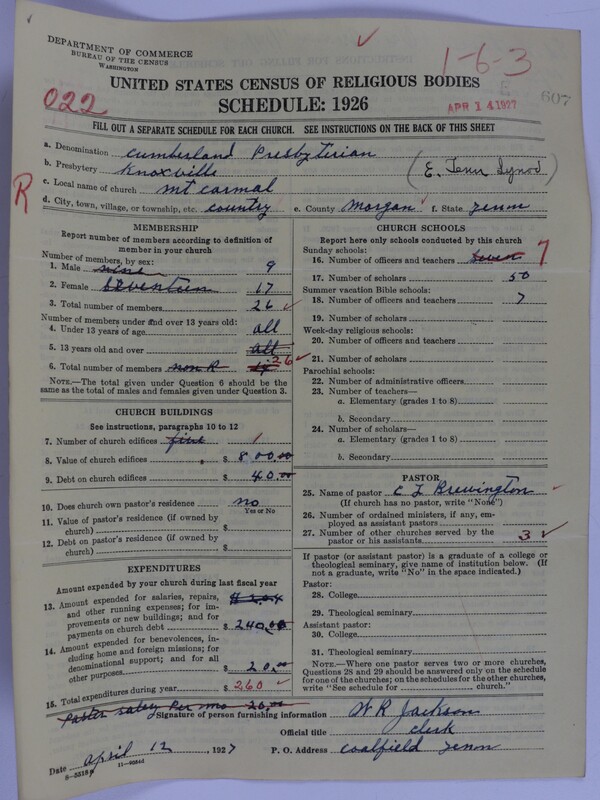 DEPARTMENT OF COMMERCE
BUREAU OF THE CENSUS
WASHINGTON
1-6-3
022
APR 14 1927
607
UNITED STATES CENSUS OF RELIGIOUS BODIES
SCHEDULE: 1926
FILL OUT A SEPARATE SCHEDULE FOR EACH CHURCH. SEE INSTRUCTIONS ON THE BACK OF THIS SHEET
a. Denomination Cumberland Presbyterian
b. Presbytery Knoxville (E. Tenn Synod)
c. Local name of church mt carmal
R
d. City, town, village, or township, etc. country e. County Morgan f. State Tenn
MEMBERSHIP
Report number of members according to definition of member in your church
Number of members, by sex:
1. Male nine 9
2. Female Seventeen 17
3. Total number of members 26
Number of members under and over 13 years old:
4. Under 13 years of age all
5. 13 years old and over all
6. Total number of members 26
NOTE.—The total given under Question 6 should be the same as the total of males and females given under Question 3.
CHURCH BUILDINGS
See instructions, paragraphs 10 to 12
7. Number of church edifices 1
8. Value of church edifices $ 800.00
9. Debt on church edifices $ 40.00
10. Does church own pastor's residence no
Yes or No
11. Value of pastor's residence (if owned by church) $
12. Debt on pastor's residence (if owned by church) $
EXPENDITURES
Amount expended by your church during last fiscal year
13. Amount expended for salaries, repairs, and other running expenses; for improvements or new buildings; and for payments on church debt $ 240.00
14. Amount expended for benevolences, including home and foreign missions; for denominational support; and for all other purposes $ 20.00
15. Total expenditures during year $ 260
Paster salry Per mo 20.00
CHURCH SCHOOLS
Report here only schools conducted by this church
Sunday schools:
16. Number of officers and teachers Seven 7
17. Number of scholars 50
Summer vacation Bible schools:
18. Number of officers and teachers 7
19. Number of scholars
Week-day religious schools:
20. Number of officers and teachers
21. Number of scholars
Parochial schools:
22. Number of administrative officers
23. Number of teachers—
a. Elementary (grades 1 to 8)
b. Secondary
24. Number of scholars—
a. Elementary (grades 1 to 8)
b. Secondary
PASTOR
25. Name of pastor C L Brewington
(If church has no pastor, write "None")
26. Number of ordained ministers, if any, employed as assistant pastors
27. Number of other churches served by the pastor or his assistants 3
If pastor (or assistant pastor) is a graduate of a college or theological seminary, give name of institution below. (If not a graduate, write "No" in the space indicated.)
Pastor:
28. College
29. Theological seminary
Assistant pastor:
30. College
31. Theological seminary
NOTE.—Where one pastor serves two or more churches, Questions 28 and 29 should be answered only on the schedule for one of the churches; on the schedules for the other churches, write "See schedule for ............ church."
Signature of person furnishing information W R Jackson
Official title clerk
Date april 12, 1927 P. O. Address coalfield Tenn